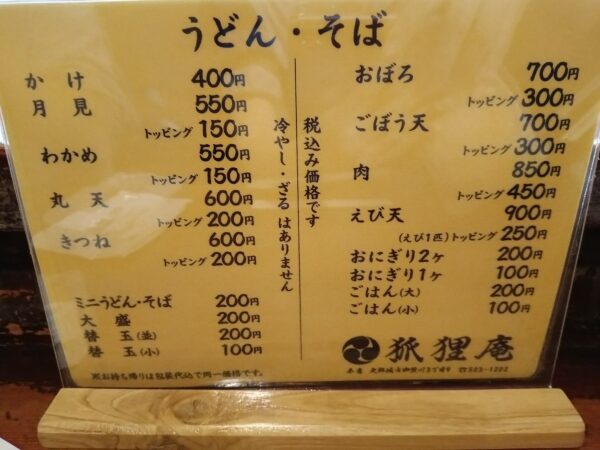 うどん・そば
かけ 400円
月見 550円
トッピング 150円
わかめ 550円
トッピング 150円
丸天 600円
トッピング 200円
きつね 600円
トッピング 200円
ミニうどん・そば 200円
大盛 200円
替玉(並) 200円
替玉(小) 100円
※お持ち帰りは包装代込で同一価格です。
税込み価格です
冷やし・ざるはありません
おぼろ 700円
トッピング 300円
ごぼう天 700円
トッピング 300円
肉 850円
トッピング 450円
えび天 900円
(えび1匹)トッピング 250円
おにぎり2ヶ 200円
おにぎり1ヶ 100円
ごはん(大) 200円
ごはん(小) 100円
狐狸庵
本店 大野城市御笠川3丁目9 ☎503-1202